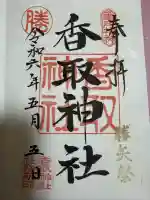 奉拝
香取神社
令和六年五月五日
勝
香取神社
勝矢祭